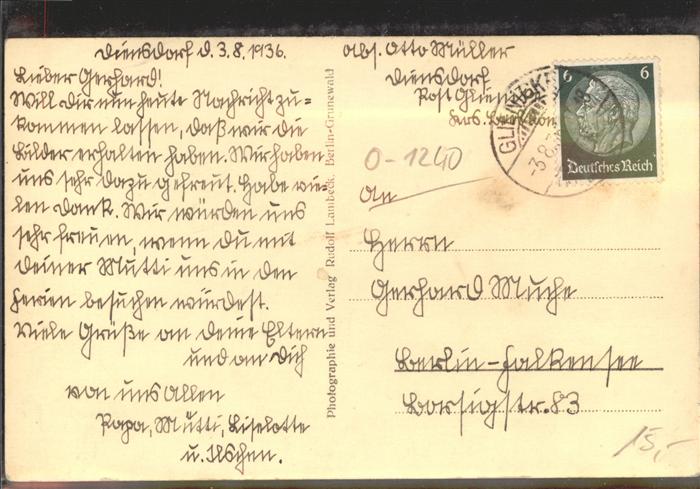 Diensdorf d. 3.8.1936.
Lieber Gerhard!
Will dir nun heute Nachricht zu=
kommen lassen, daß wir die
Bilder erhalten haben. Wir haben
uns sehr dazu gefreut. Habe vie=
len Dank. Wir würden uns
sehr freuen, wenn du mit
deiner Mutti uns in den
Ferien besuchen würdest.
Viele Grüße an deine Eltern
und an dich
von uns allen
Papa, Mutti, Liselotte
u. Ilschen.
Photographie und Verlag Rudolf Lambeck, Berlin-Grunewald
abs. Otto Müller
Diensdorf
Post Glien
Krs.
6 6
Deutsches Reich
-3.8.
0-1240
An
Herrn
Gerhard Muche
Berlin-Falkensee
Borsigstr. 83
15,-